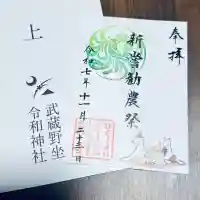 奉拝
新嘗勧農祭
令和七年十一月二十三日
上
武蔵野坐
令和神社